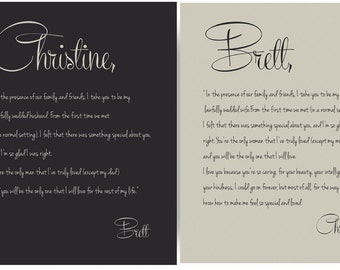 Christine,
n the presence of our family and friends, I take you to be my
lawfully wedded husband. From the first time we met
a normal setting), I felt that there was something special about you,
I'm so glad I was right.
are the only man that I've truly loved (except my dad)
you will be the only one that I will for the rest of my life."
Brett
Brett,
"In the presence of our family and friends, I take you to be my
lawfully wedded wife. From the first time we met (in a normal
I felt that there was something special about you, and I'm so
right. You're the only woman that I've truly loved (except my m
and you will be the only one that I will love.
I love you because you're so caring, for your beauty, your intellig
your kindness, I could go on forever, but most of all, for the way
know how to make me feel so special and loved.
Ch